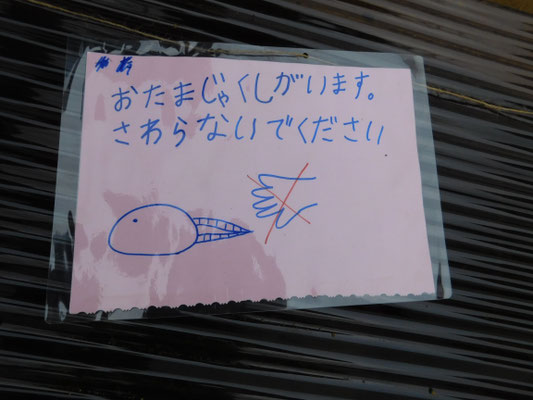 おたまじゃくしがいます。
さわらないでください